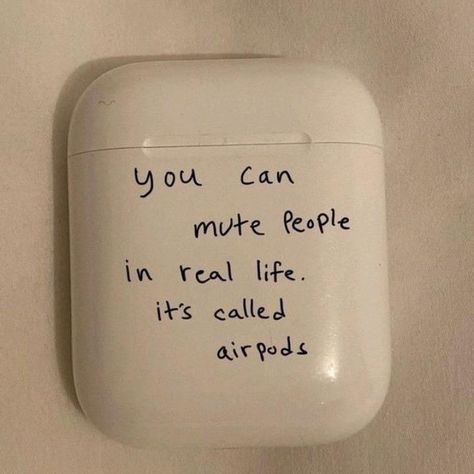 you can
mute People
in real life.
it's called
airpods